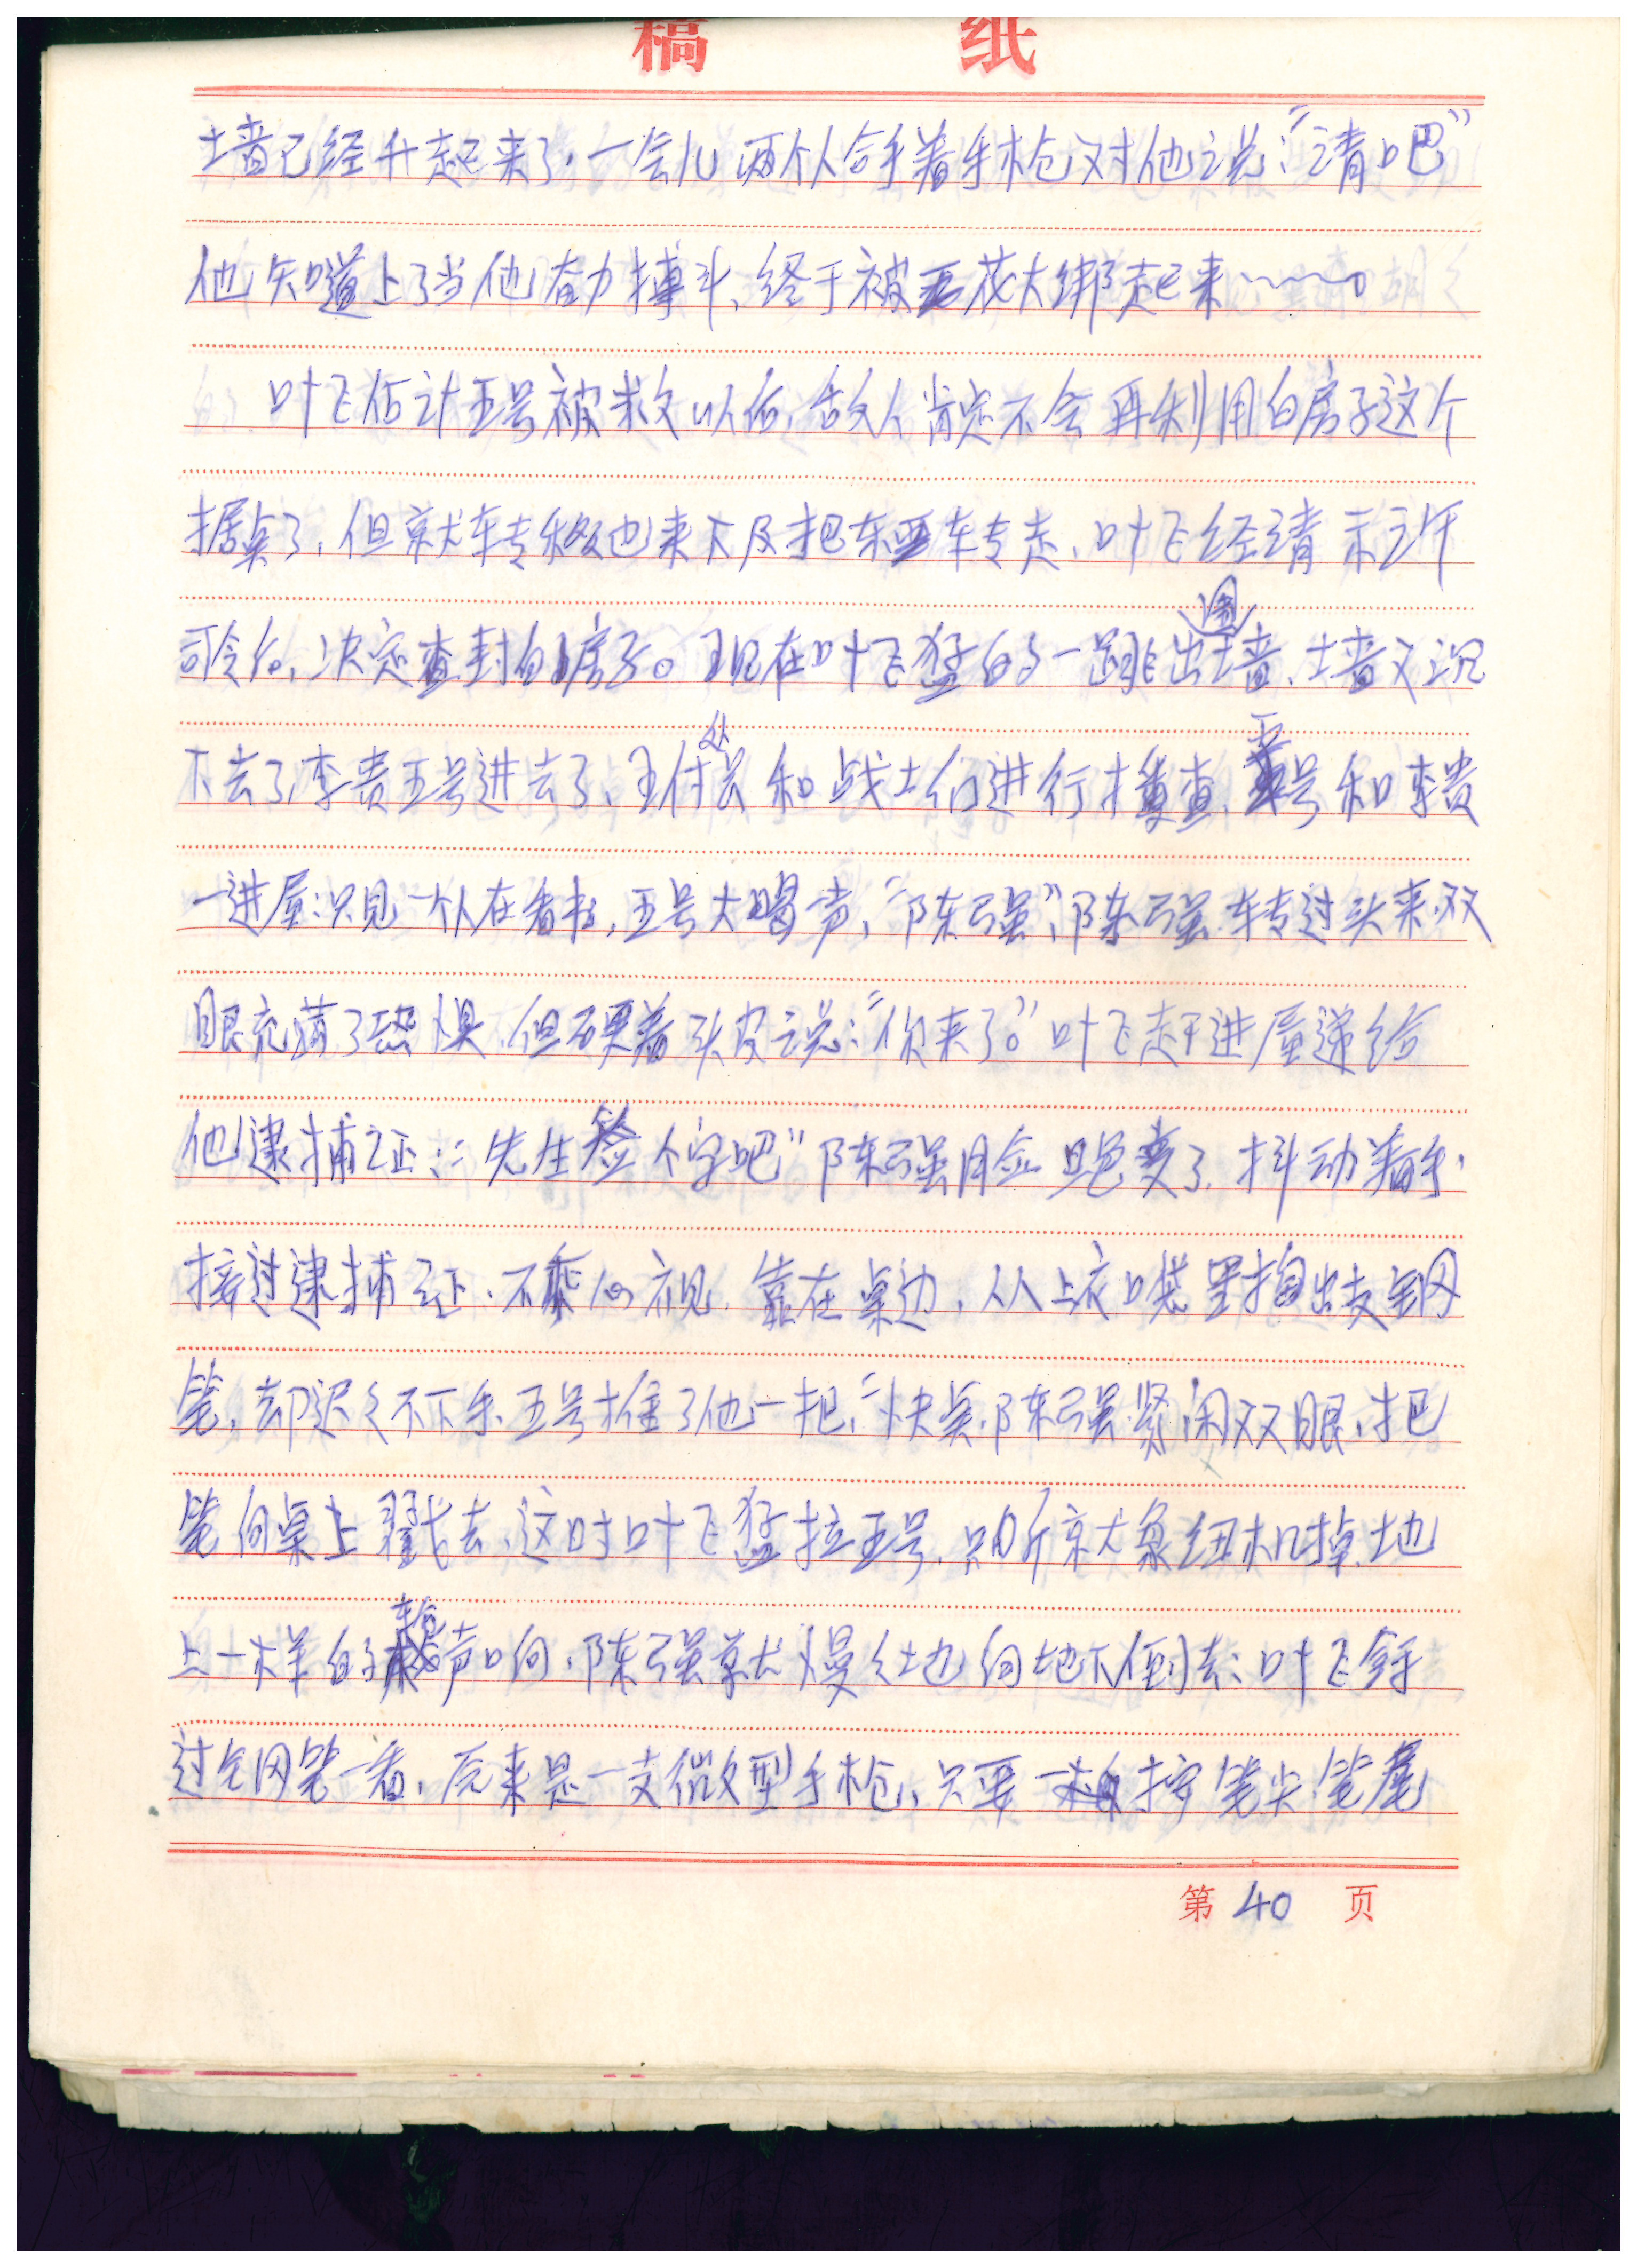 稿 纸
墙已经升起来了.一会儿两个人拿着手枪对他说:“请吧”
他知道上了当他奋力搏斗、终于被五花大绑起来~~~。
叶飞估计五号被救以后,敌人肯定不会再利用白房子这个
据点了,但就转移也来不及把东西转走、叶飞经请示许
司令后,决定查封白房子。现在叶飞猛的一跳出围墙、墙又沉
下去了,李贵五号进去了、王付处长和战士们进行搜查、五号和李贵
一进屋:只见一个人在看书,五号大喝一声,“陈强”,陈强转过头来,双
眼充满了恐惧.但硬着头皮说:“你来了。”叶飞走进屋递给
他逮捕证:“先生签个字吧”陈强脸旦色变了.抖动着手.
接过逮捕证.不看.靠在桌边,从上衣口袋里掏出支钢
笔,却迟々不下手.五号推了他一把,“快点.陈强紧闭双眼,把
笔向桌上戳去、这时叶飞猛拉五号.只听就象纽机掉地
上一样的声响.陈强就慢々地向地下倒去:叶飞拿
过钢笔一看,原来是一支微型手枪,只要一按笔尖.笔尾
第 40 页